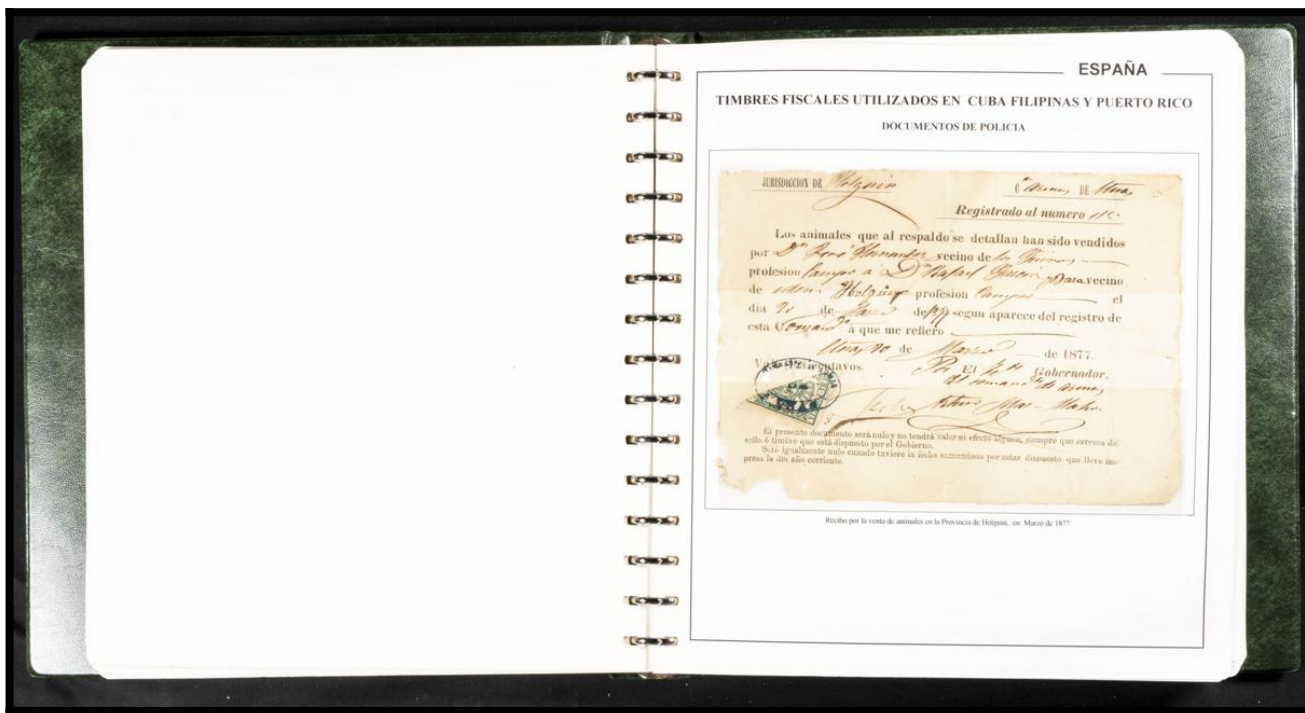 ESPAÑA
TIMBRES FISCALES UTILIZADOS EN CUBA FILIPINAS Y PUERTO RICO
DOCUMENTOS DE POLICIA
JURISDICCION DE Holguin
DE
Registrado al número
Los animales que al respaldo se detallan han sido vendidos
por Dn José Hernandez vecino de los
profesion Campo a Dn Rafael vecino
de idem Holguin profesion Campo el
dia de Marzo de segun aparece del registro de
esta a que me refiero
de Marzo de 1877.
El Gobernador,
El presente documento será nulo y no tendrá valor ni efecto alguno, siempre que carezca del
sello ó timbre que está dispuesto por el Gobierno.
Será igualmente nulo cuando tuviere la fecha enmendada por estar dispuesto que lleve im-
presa la del año corriente.
Recibo por la venta de animales en la Provincia de Holguin, en Marzo de 1877.